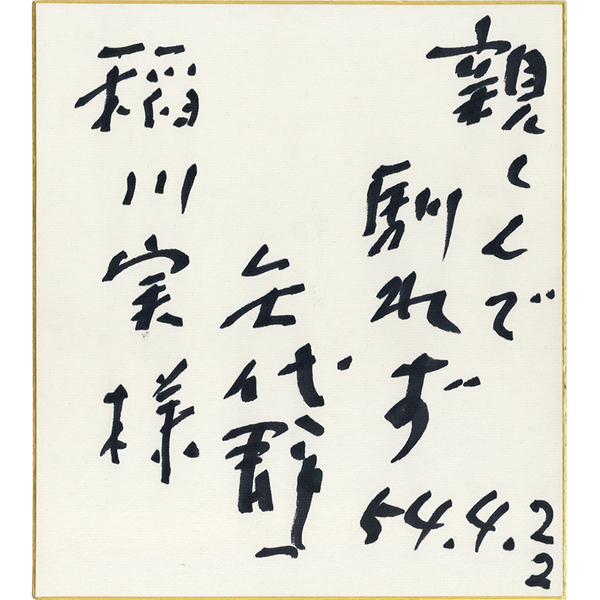 親しんで
馴れず
54.4.22
矢代静一
稲川実様